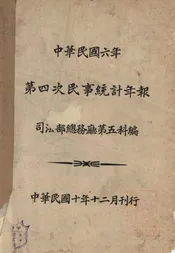 中華民國六年
第四次民事統計年報
司法部總務廳第五科編
中華民國十年十二月刊行